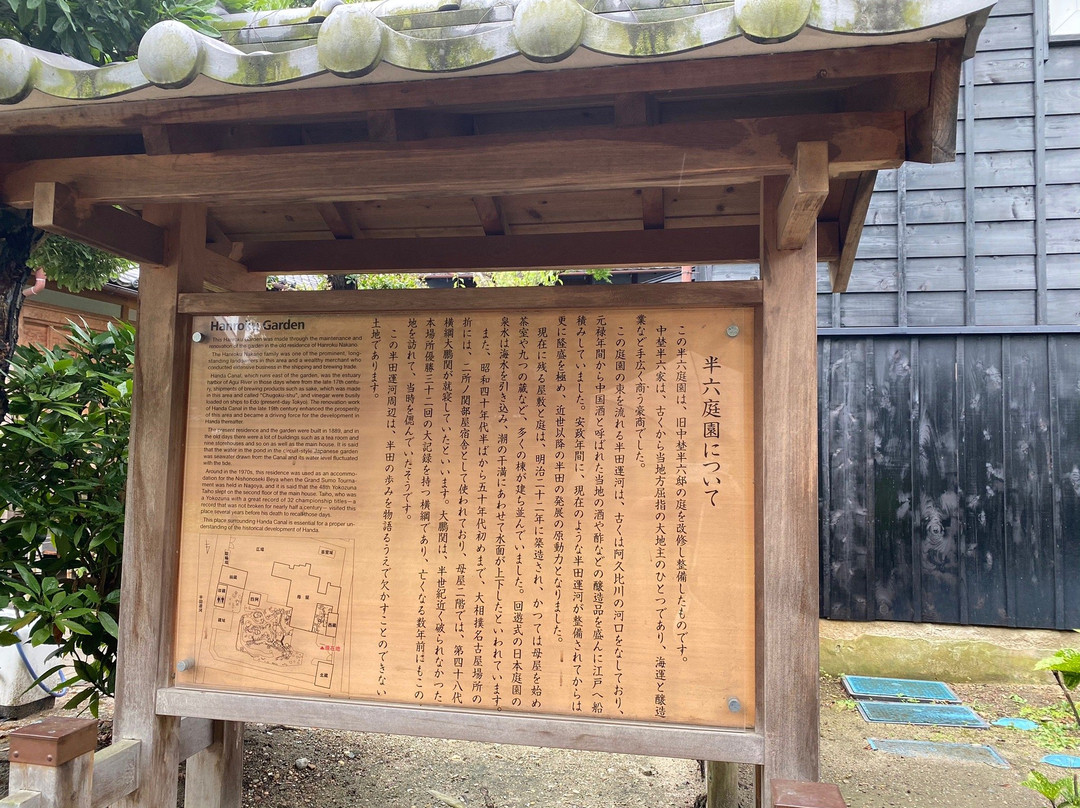 半六庭園について
この半六庭園は、旧中埜半六邸の庭を改修し整備したものです。
中埜半六家は、古くから当地方屈指の大地主のひとつであり、海運と醸造
業など手広く商う豪商でした。
この庭園の東を流れる半田運河は、古くは阿久比川の河口をなしており、
元禄年間から中国酒と呼ばれた当地の酒や酢などの醸造品を盛んに江戸へ船
積みしていました。安政年間に、現在のような半田運河が整備されてからは
更に隆盛を極め、近世以降の半田の発展の原動力となりました。
現在に残る屋敷と庭は、明治二十二年に築造され、かつては母屋を始め
茶室や九つの蔵など、多くの棟が建ち並んでいました。回遊式の日本庭園の
泉水は海水を引き込み、潮の干満にあわせて水面が上下したといわれています。
また、昭和四十年代半ばから五十年代初めまで、大相撲名古屋場所の
折には、二所ノ関部屋宿舎として使われており、母屋二階では、第四十八代
横綱大鵬関が就寝していたといいます。大鵬関は、半世紀近く破られなかった
本場所優勝三十二回の大記録を持つ横綱であり、亡くなる数年前にもこの
地を訪れて、当時を偲んでいたそうです。
この半田運河周辺は、半田の歩みを物語るうえで欠かすことのできない
土地であります。
Hanroku Garden
The Hanroku Garden was made through the maintenance and
renovation of the garden in the old residence of Hanroku Nakano.
The Hanroku Nakano family was one of the prominent, long-
standing landowners in this area and a wealthy merchant who
conducted extensive business in the shipping and brewing trade.
Handa Canal, which runs east of the garden, was the estuary
harbor of Agui River in those days where from the late 17th centu-
ry, shipments of brewing products such as sake, which was made
in this area and called "Chugoku-shu", and vinegar were busily
loaded on ships to Edo (present-day Tokyo). The renovation work
of Handa Canal in the late 19th century enhanced the prosperity
of this area and became a driving force for the development in
Handa thereafter.
The present residence and the garden were built in 1889, and in
the old days there were a lot of buildings such as a tea room and
nine storehouses and so on as well as the main house. It is said
that the water in the pond in the circuit-style Japanese garden
was seawater drawn from the Canal and its water level fluctuated
with the tide.
Around in the 1970s, this residence was used as an accommo-
dation for the Nishonoseki Beya when the Grand Sumo Tourna-
ment was held in Nagoya, and it is said that the 48th Yokozuna
Taiho slept on the second floor of the main house. Taiho, who was
a Yokozuna with a great record of 32 championship titles—a
record that was not broken for nearly half a century— visited this
place several years before his death to recall those days.
This place surrounding Handa Canal is essential for a proper un-
derstanding of the historical development of Handa.
広場
母屋
現在地